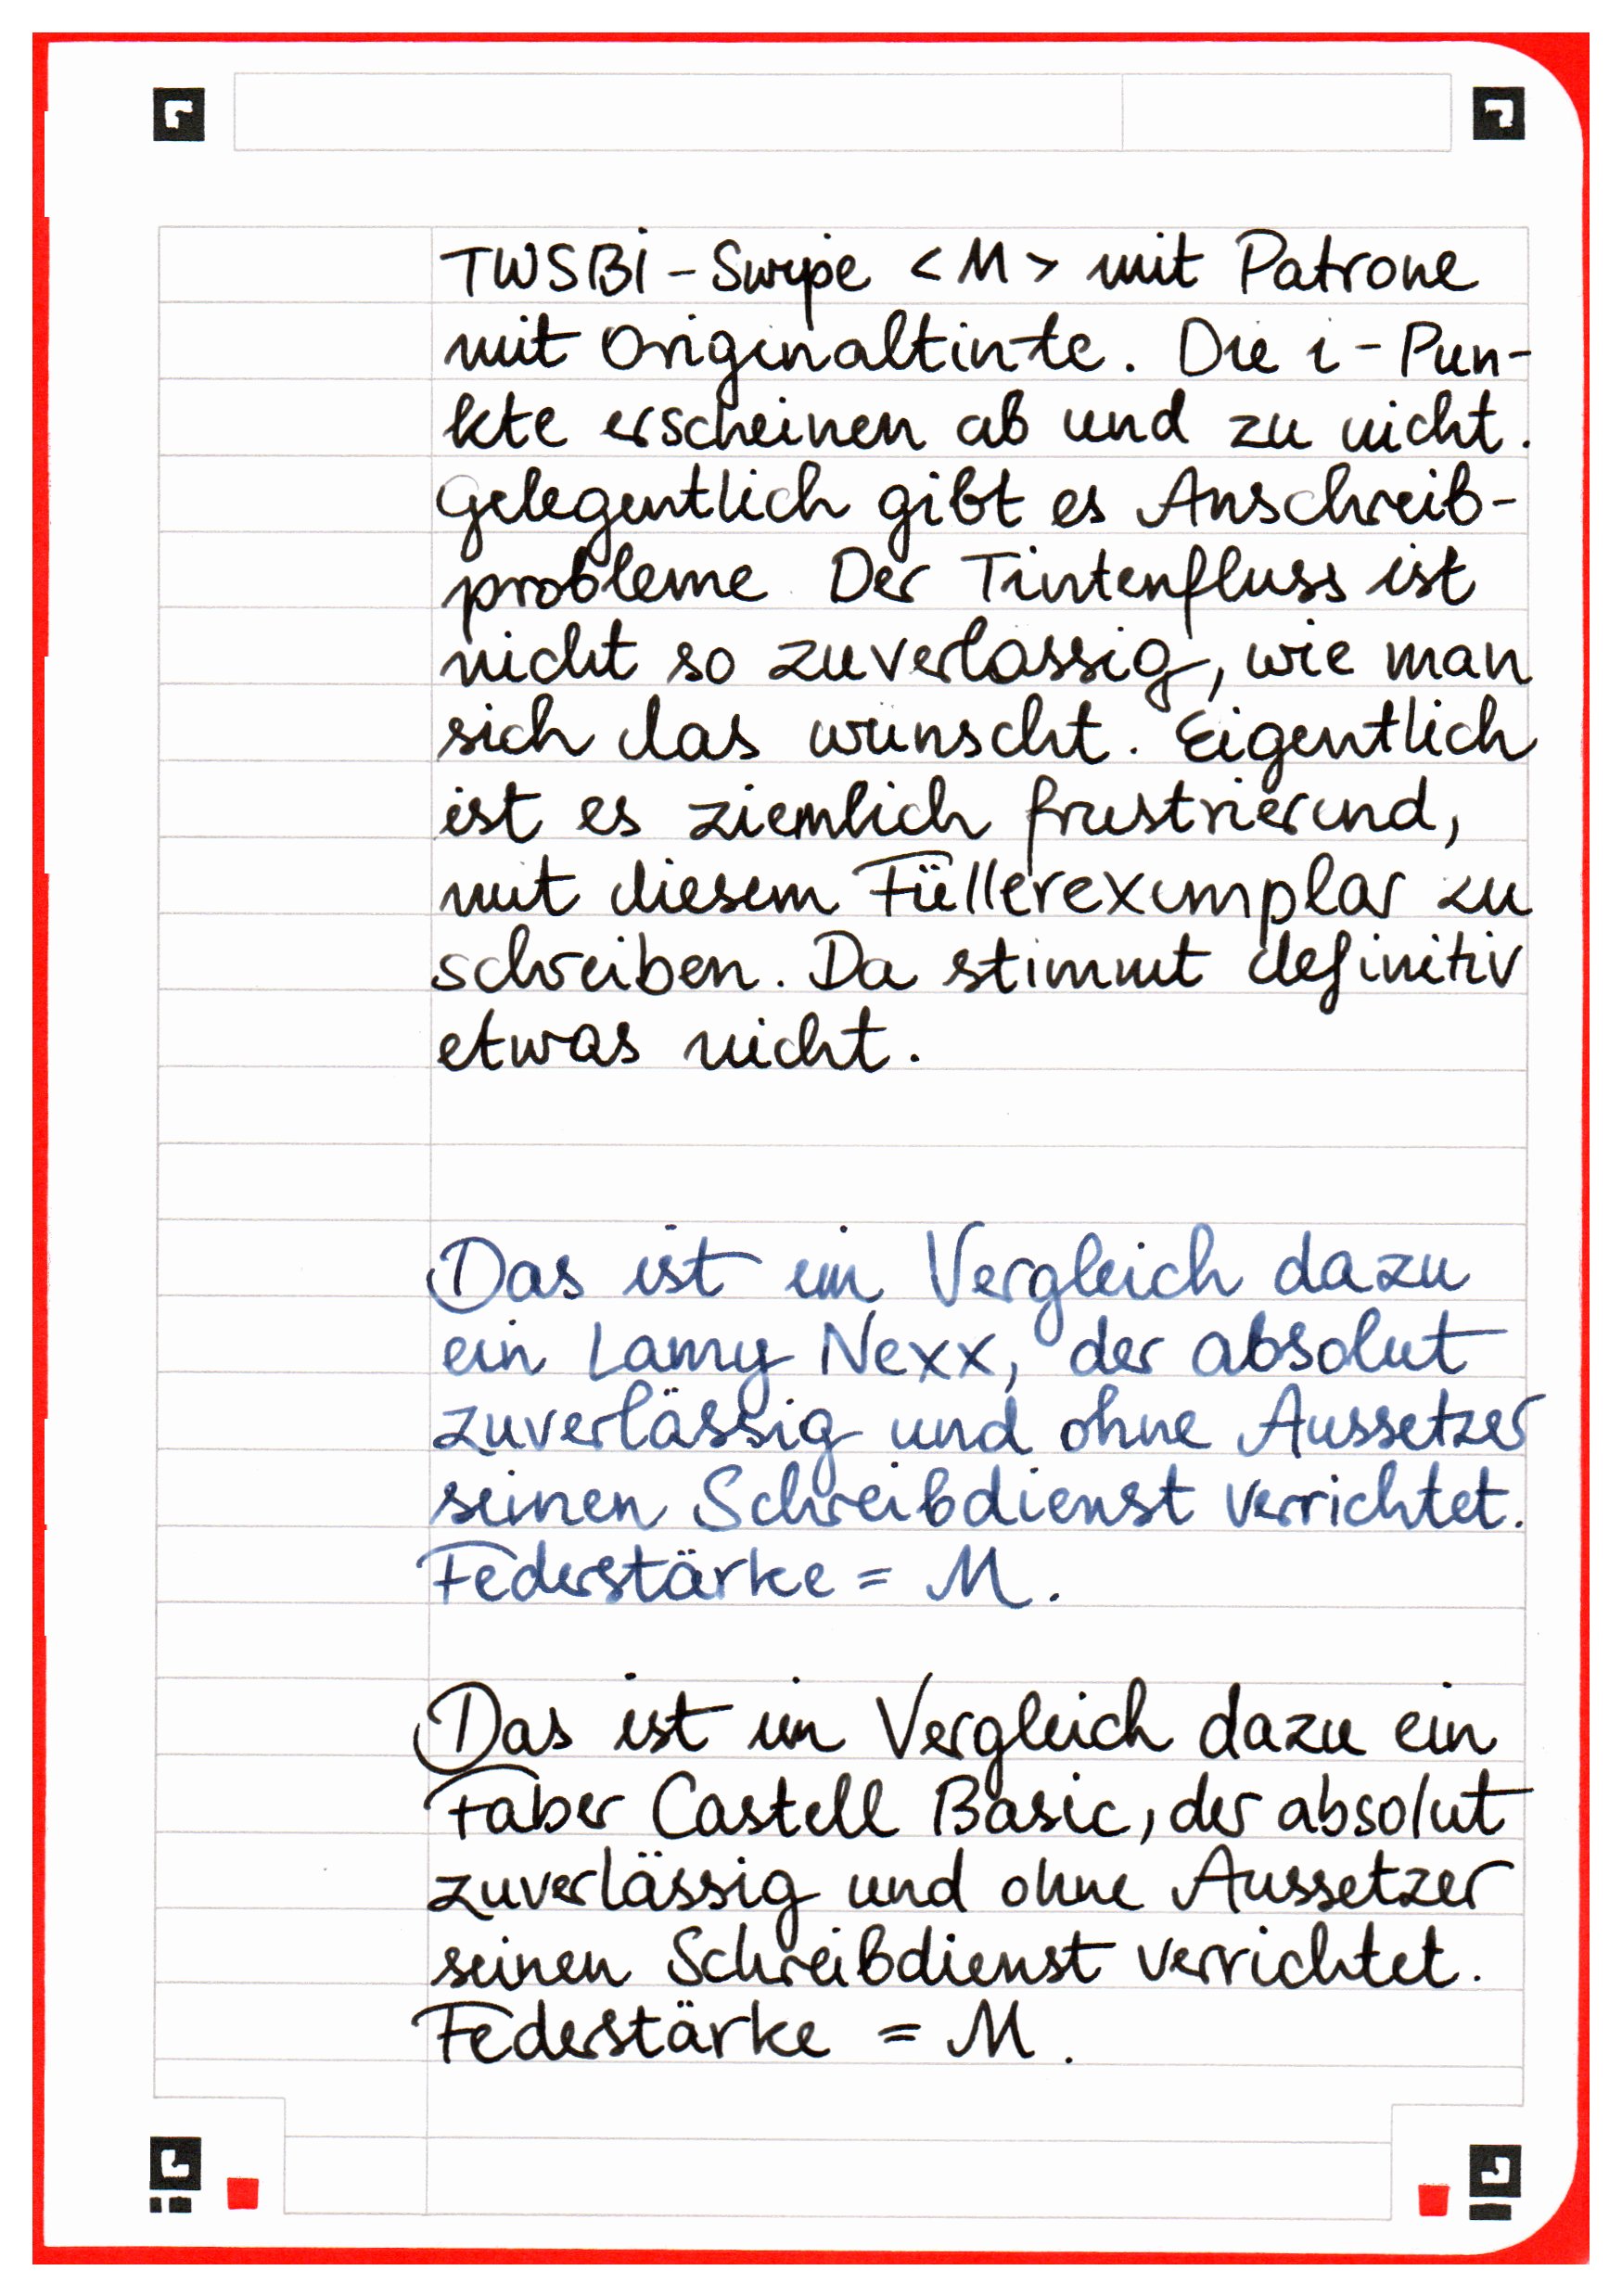 TWSBI - Swipe <M> mit Patrone
mit Originaltinte. Die i-Pun-
kte erscheinen ab und zu nicht.
Gelegentlich gibt es Anschreib-
probleme. Der Tintenfluss ist
nicht so zuverlassig, wie man
sich das wünscht. Eigentlich
ist es ziemlich frustrierend,
mit diesem Füllerexemplar zu
schreiben. Da stimmt definitiv
etwas nicht.
Das ist im Vergleich dazu
ein Lamy Nexx, der absolut
zuverlässig und ohne Aussetzer
seinen Schreibdienst verrichtet.
Federstärke = M.
Das ist im Vergleich dazu ein
Faber Castell Basic, der absolut
zuverlässig und ohne Aussetzer
seinen Schreibdienst verrichtet.
Federstärke = M.